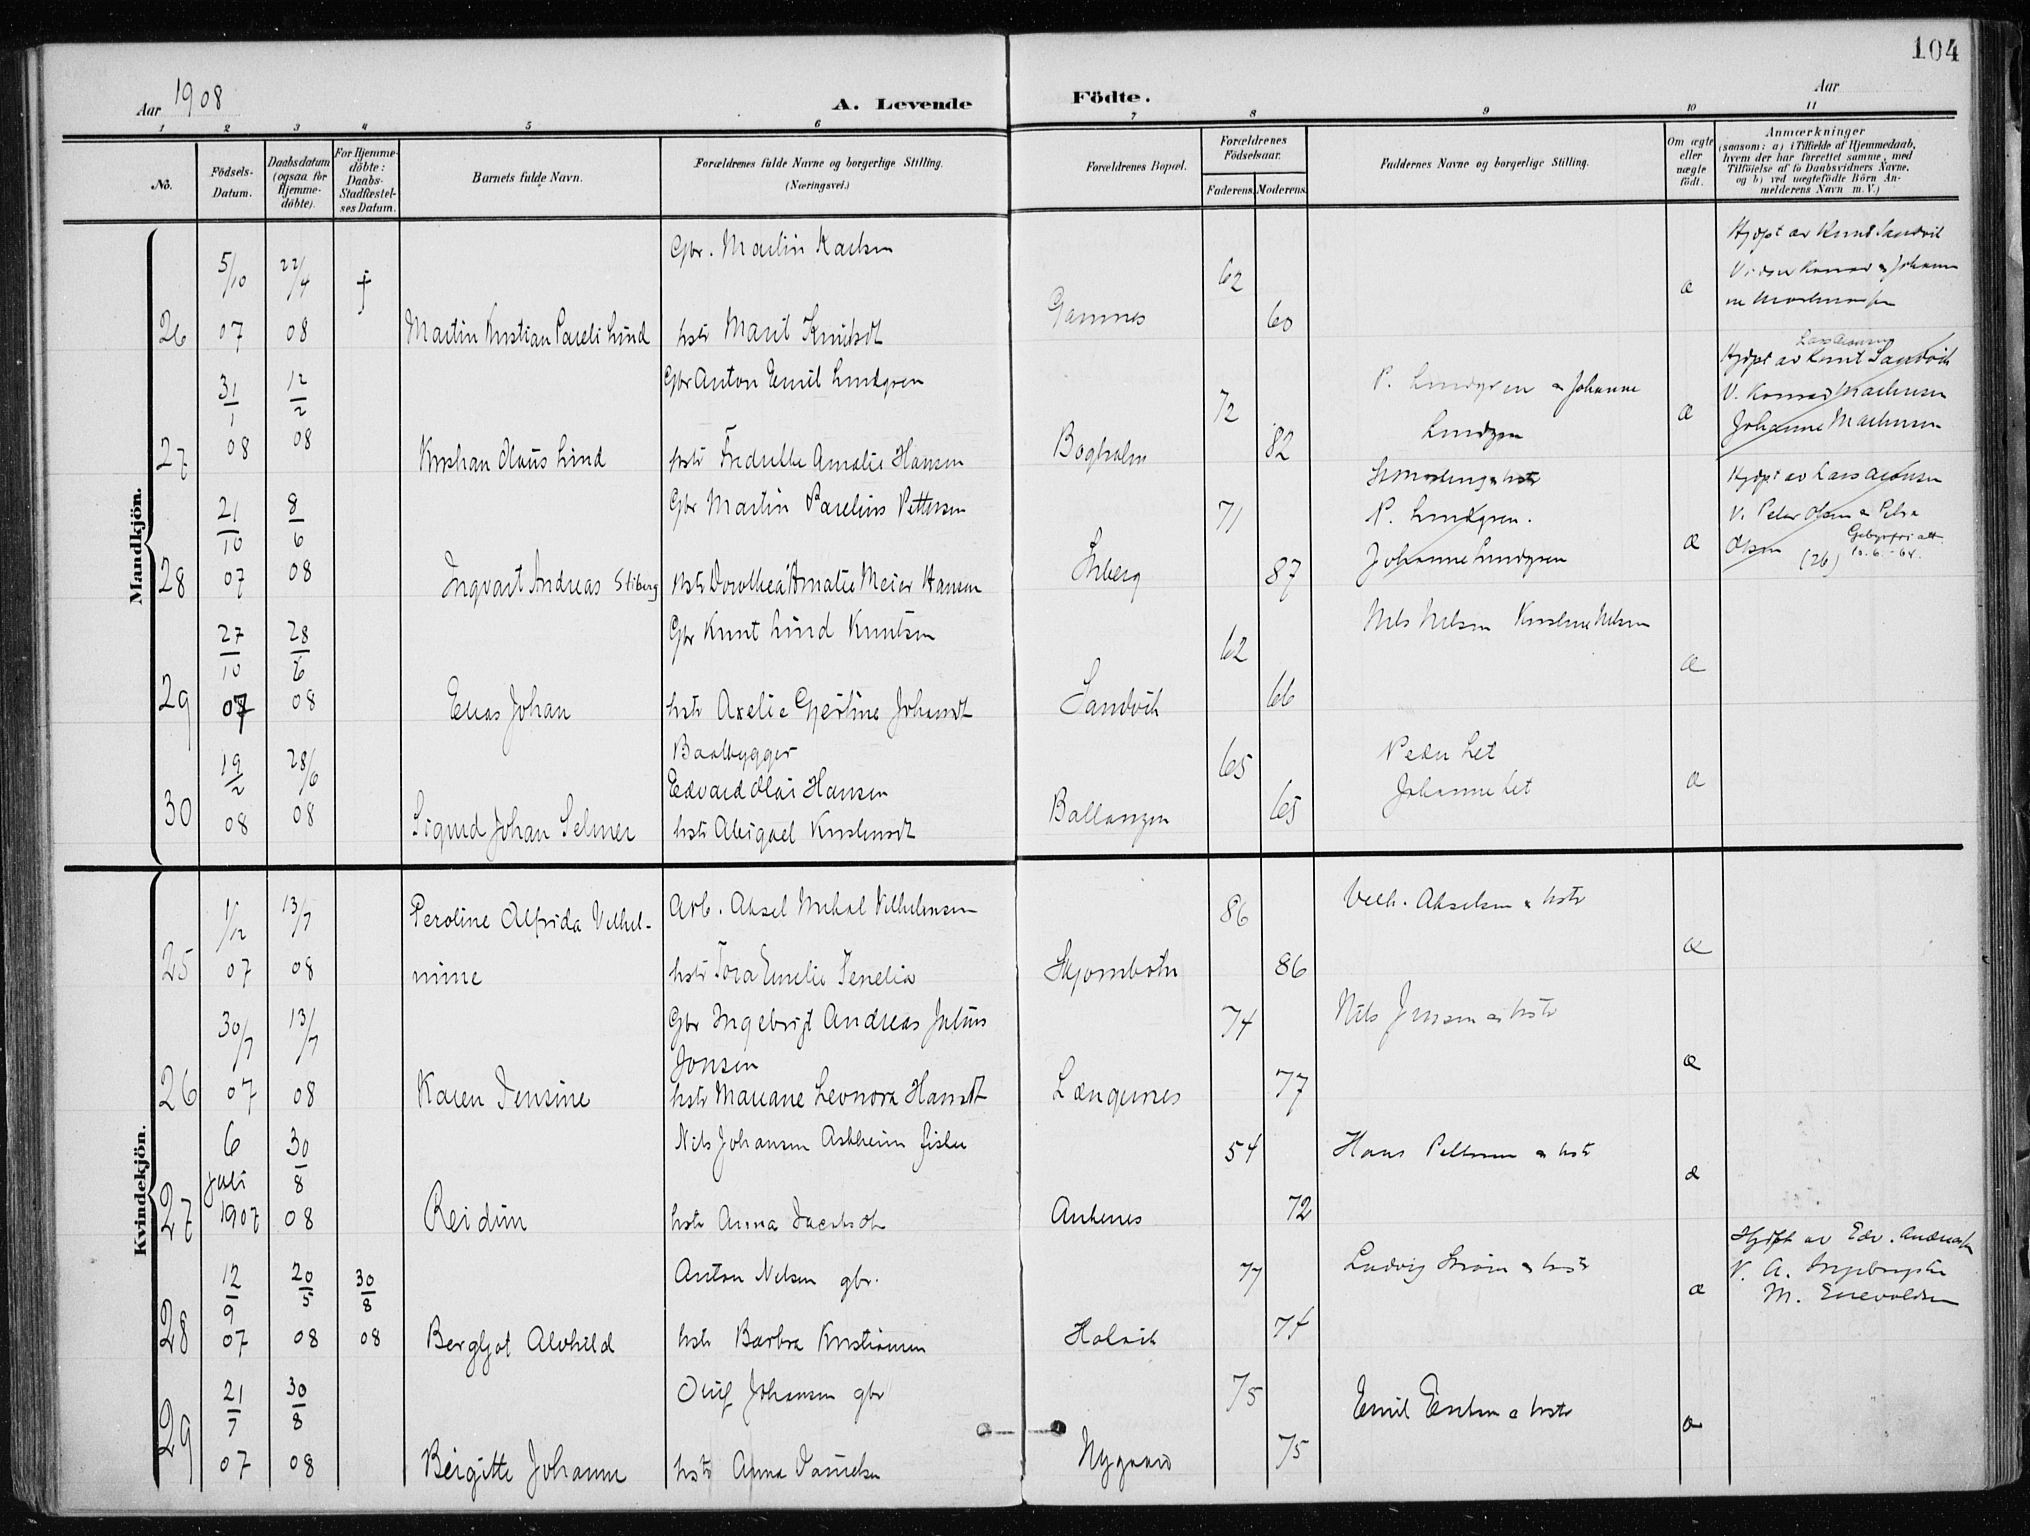 104
Aar 1908
A. Levende Födte.
Aar
1 2 3 4 5 6 7 8 9 10 11
No.
Födsels-
Datum.
Daabsdatum
(ogsaa for
Hjemme-
döbte).
For Hjemme-
döbte:
Daabs-
Stadfæstel-
ses Datum.
Barnets fulde Navn.
Forældrenes fulde Navne og borgerlige Stilling.
(Næringsvei.)
Forældrenes Bopæl.
Forældrenes
Födselsaar.
Faderens. Moderens.
Faddernes Navne og borgerlige Stilling.
Om ægte
eller
uægte
födt.
Anmærkninger
(saasom: a) i Tilfælde af Hjemmedaab,
hvem der har forrettet samme, med
Tilföielse af to Daabsvidners Navne,
og b) ved uægtefödte Börn An-
melderens Navn m. V.)
Mandkjön.
26
5/10 07
22/4 08
†
Martin Kristian Pareli Lind
Gbr. Martin Karlsen
hstr Marit Knutsdt
Gamnes
62
60
æ
Hjdpt av Knut Sandvik
27
31/1 08
12/2 08
Kristian Olaus Lind
Gbr Anton Emil Lundgren
hstr Fredrikke Amalie Hansen
Bogholm
72
82
P. Lundgren & Johanne
Lundgren
æ
Lars Aronsen
Hjdpt av Knut Sandvik
V. Konrad Martinsen
Johanne Martinsen
28
21/10 07
8/6 08
Ingvart Andreas Stiberg
Gbr Martin Parelius Pettersen
hstr Dorothea Amalie Meier Hansen
Stiberg
71
87
P. Lundgren.
Johanne Lundgren
æ
Hjdpt av Lars Aronsen
V. Peter Olsen & Petra
Olsen (26)
Gebyrfri att.
10.6.-64.
29
27/10 07
28/6 08
Elias Johan
Gbr Knut Lind Knutsen
hstr Axelie Gjertine Johansdt
Sandvik
62
66
Nils Nilsen Kristine Nilsen
æ
30
19/2 08
28/6 08
Sigurd Johan Selmer
Baatbygger
Edvard Olai Hansen
hstr Abigael Kristensdt
Ballangen
65
65
Peder Let
Johanne Let
æ
Kvindekjön.
25
1/12 07
13/7 08
Peroline Alfrida Vilhel-
mine
Arb. Aksel Mikal Vilhelmsen
hstr Tora Emelie Tenelia
Skjombotn
86
86
Vilh. Akselsen & hstr
æ
26
30/7 07
13/7 08
Karen Jensine
Gbr Ingebrigt Andreas Julius
Jonsen
hstr Mariane Leonora Hansdt
Længenes
74
77
Nils Jensen & hstr
æ
27
6 juli 1907
30/8 08
Reidun
Nils Johansen Askheim fisker
hstr Anna Jacobsdt
Ankenes
54
72
Hans Pettersen & hstr
æ
28
12/9 07
20/5 08
30/8 08
Bergljot Alvhild
Anton Nilsen gbr.
hstr Barbra Kristiansen
Halvik
77
74
Ludvig Strøm & hstr
æ
Hjdpt av Edv. Andreas
V. A. Ingebrigtsen
M. Enevoldsen
29
21/7 07
30/8 08
Birgitte Johanne
Oluf Johansen gbr
hstr Anna Danielsen
Nygaard
75
75
Emil Eriksen & hstr
æ